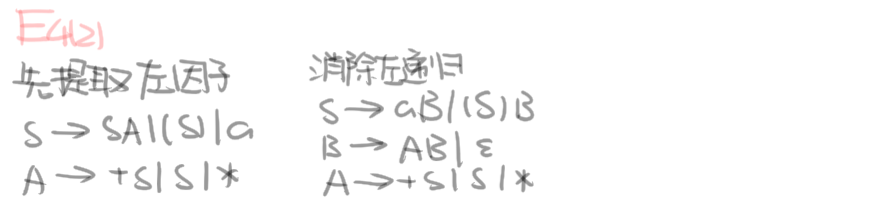 E4(2)
先提取左因子
S → SA|(S)|a
A → +S|S|*
消除左递归
S → aB|(S)B
B → AB|ε
A → +S|S|*